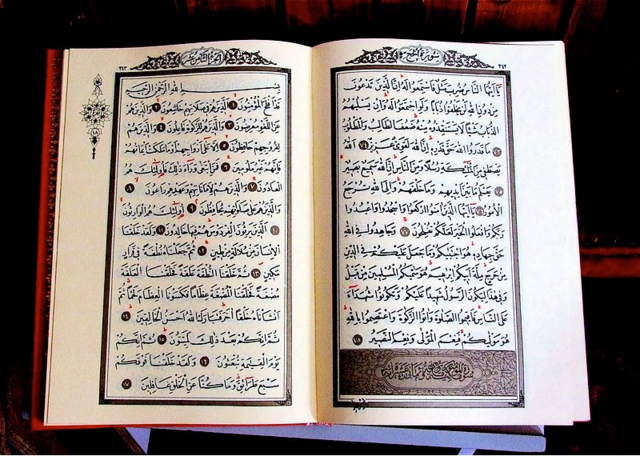 سورة الحج
يَا أَيُّهَا النَّاسُ ضُرِبَ مَثَلٌ فَاسْتَمِعُوا لَهُ إِنَّ الَّذِينَ تَدْعُونَ
مِنْ دُونِ اللَّهِ لَنْ يَخْلُقُوا ذُبَابًا وَلَوِ اجْتَمَعُوا لَهُ وَإِنْ يَسْلُبْهُمُ
الذُّبَابُ شَيْئًا لَا يَسْتَنْقِذُوهُ مِنْهُ ضَعُفَ الطَّالِبُ وَالْمَطْلُوبُ
٧٣ مَا قَدَرُوا اللَّهَ حَقَّ قَدْرِهِ إِنَّ اللَّهَ لَقَوِيٌّ عَزِيزٌ ٧٤ اللَّهُ
يَصْطَفِي مِنَ الْمَلٰئِكَةِ رُسُلًا وَمِنَ النَّاسِ إِنَّ اللَّهَ سَمِيعٌ بَصِيرٌ
٧٥ يَعْلَمُ مَا بَيْنَ أَيْدِيهِمْ وَمَا خَلْفَهُمْ وَإِلَى اللَّهِ تُرْجَعُ
الْأُمُورُ ٧٦ يَا أَيُّهَا الَّذِينَ آمَنُوا ارْكَعُوا وَاسْجُدُوا وَاعْبُدُوا
رَبَّكُمْ وَافْعَلُوا الْخَيْرَ لَعَلَّكُمْ تُفْلِحُونَ ٧٧ وَجَاهِدُوا فِي اللَّهِ
حَقَّ جِهَادِهِ هُوَ اجْتَبٰيكُمْ وَمَا جَعَلَ عَلَيْكُمْ فِي الدِّينِ
مِنْ حَرَجٍ مِلَّةَ أَبِيكُمْ إِبْرٰهِيمَ هُوَ سَمّٰيكُمُ الْمُسْلِمِينَ مِنْ قَبْلُ
وَفِي هٰذَا لِيَكُونَ الرَّسُولُ شَهِيدًا عَلَيْكُمْ وَتَكُونُوا شُهَدَاءَ
عَلَى النَّاسِ فَأَقِيمُوا الصَّلٰوةَ وَآتُوا الزَّكٰوةَ وَاعْتَصِمُوا بِاللَّهِ
هُوَ مَوْلٰيكُمْ فَنِعْمَ الْمَوْلٰى وَنِعْمَ النَّصِيرُ ٧٨
الجزء الثامن عشر
١٨
بِسْمِ اللَّهِ الرَّحْمٰنِ الرَّحِيمِ
قَدْ أَفْلَحَ الْمُؤْمِنُونَ ١ الَّذِينَ هُمْ فِي صَلَاتِهِمْ خَاشِعُونَ ٢ وَالَّذِينَ هُمْ
عَنِ اللَّغْوِ مُعْرِضُونَ ٣ وَالَّذِينَ هُمْ لِلزَّكٰوةِ فَاعِلُونَ ٤ وَالَّذِينَ هُمْ
لِفُرُوجِهِمْ حَافِظُونَ ٥ إِلَّا عَلٰى أَزْوَاجِهِمْ أَوْ مَا مَلَكَتْ أَيْمَانُهُمْ
فَإِنَّهُمْ غَيْرُ مَلُومِينَ ٦ فَمَنِ ابْتَغٰى وَرَاءَ ذٰلِكَ فَأُولٰئِكَ هُمُ
الْعَادُونَ ٧ وَالَّذِينَ هُمْ لِأَمَانَاتِهِمْ وَعَهْدِهِمْ رَاعُونَ ٨
وَالَّذِينَ هُمْ عَلٰى صَلَوَاتِهِمْ يُحَافِظُونَ ٩ أُولٰئِكَ هُمُ الْوَارِثُونَ
١٠ الَّذِينَ يَرِثُونَ الْفِرْدَوْسَ هُمْ فِيهَا خَالِدُونَ ١١ وَلَقَدْ خَلَقْنَا
الْإِنْسَانَ مِنْ سُلَالَةٍ مِنْ طِينٍ ١٢ ثُمَّ جَعَلْنَاهُ نُطْفَةً فِي قَرَارٍ
مَكِينٍ ١٣ ثُمَّ خَلَقْنَا النُّطْفَةَ عَلَقَةً فَخَلَقْنَا الْعَلَقَةَ
مُضْغَةً فَخَلَقْنَا الْمُضْغَةَ عِظَامًا فَكَسَوْنَا الْعِظَامَ لَحْمًا ثُمَّ
أَنْشَأْنَاهُ خَلْقًا آخَرَ فَتَبَارَكَ اللَّهُ أَحْسَنُ الْخَالِقِينَ ١٤
ثُمَّ إِنَّكُمْ بَعْدَ ذٰلِكَ لَمَيِّتُونَ ١٥ ثُمَّ إِنَّكُمْ
يَوْمَ الْقِيٰمَةِ تُبْعَثُونَ ١٦ وَلَقَدْ خَلَقْنَا فَوْقَكُمْ
سَبْعَ طَرَائِقَ وَمَا كُنَّا عَنِ الْخَلْقِ غَافِلِينَ ١٧